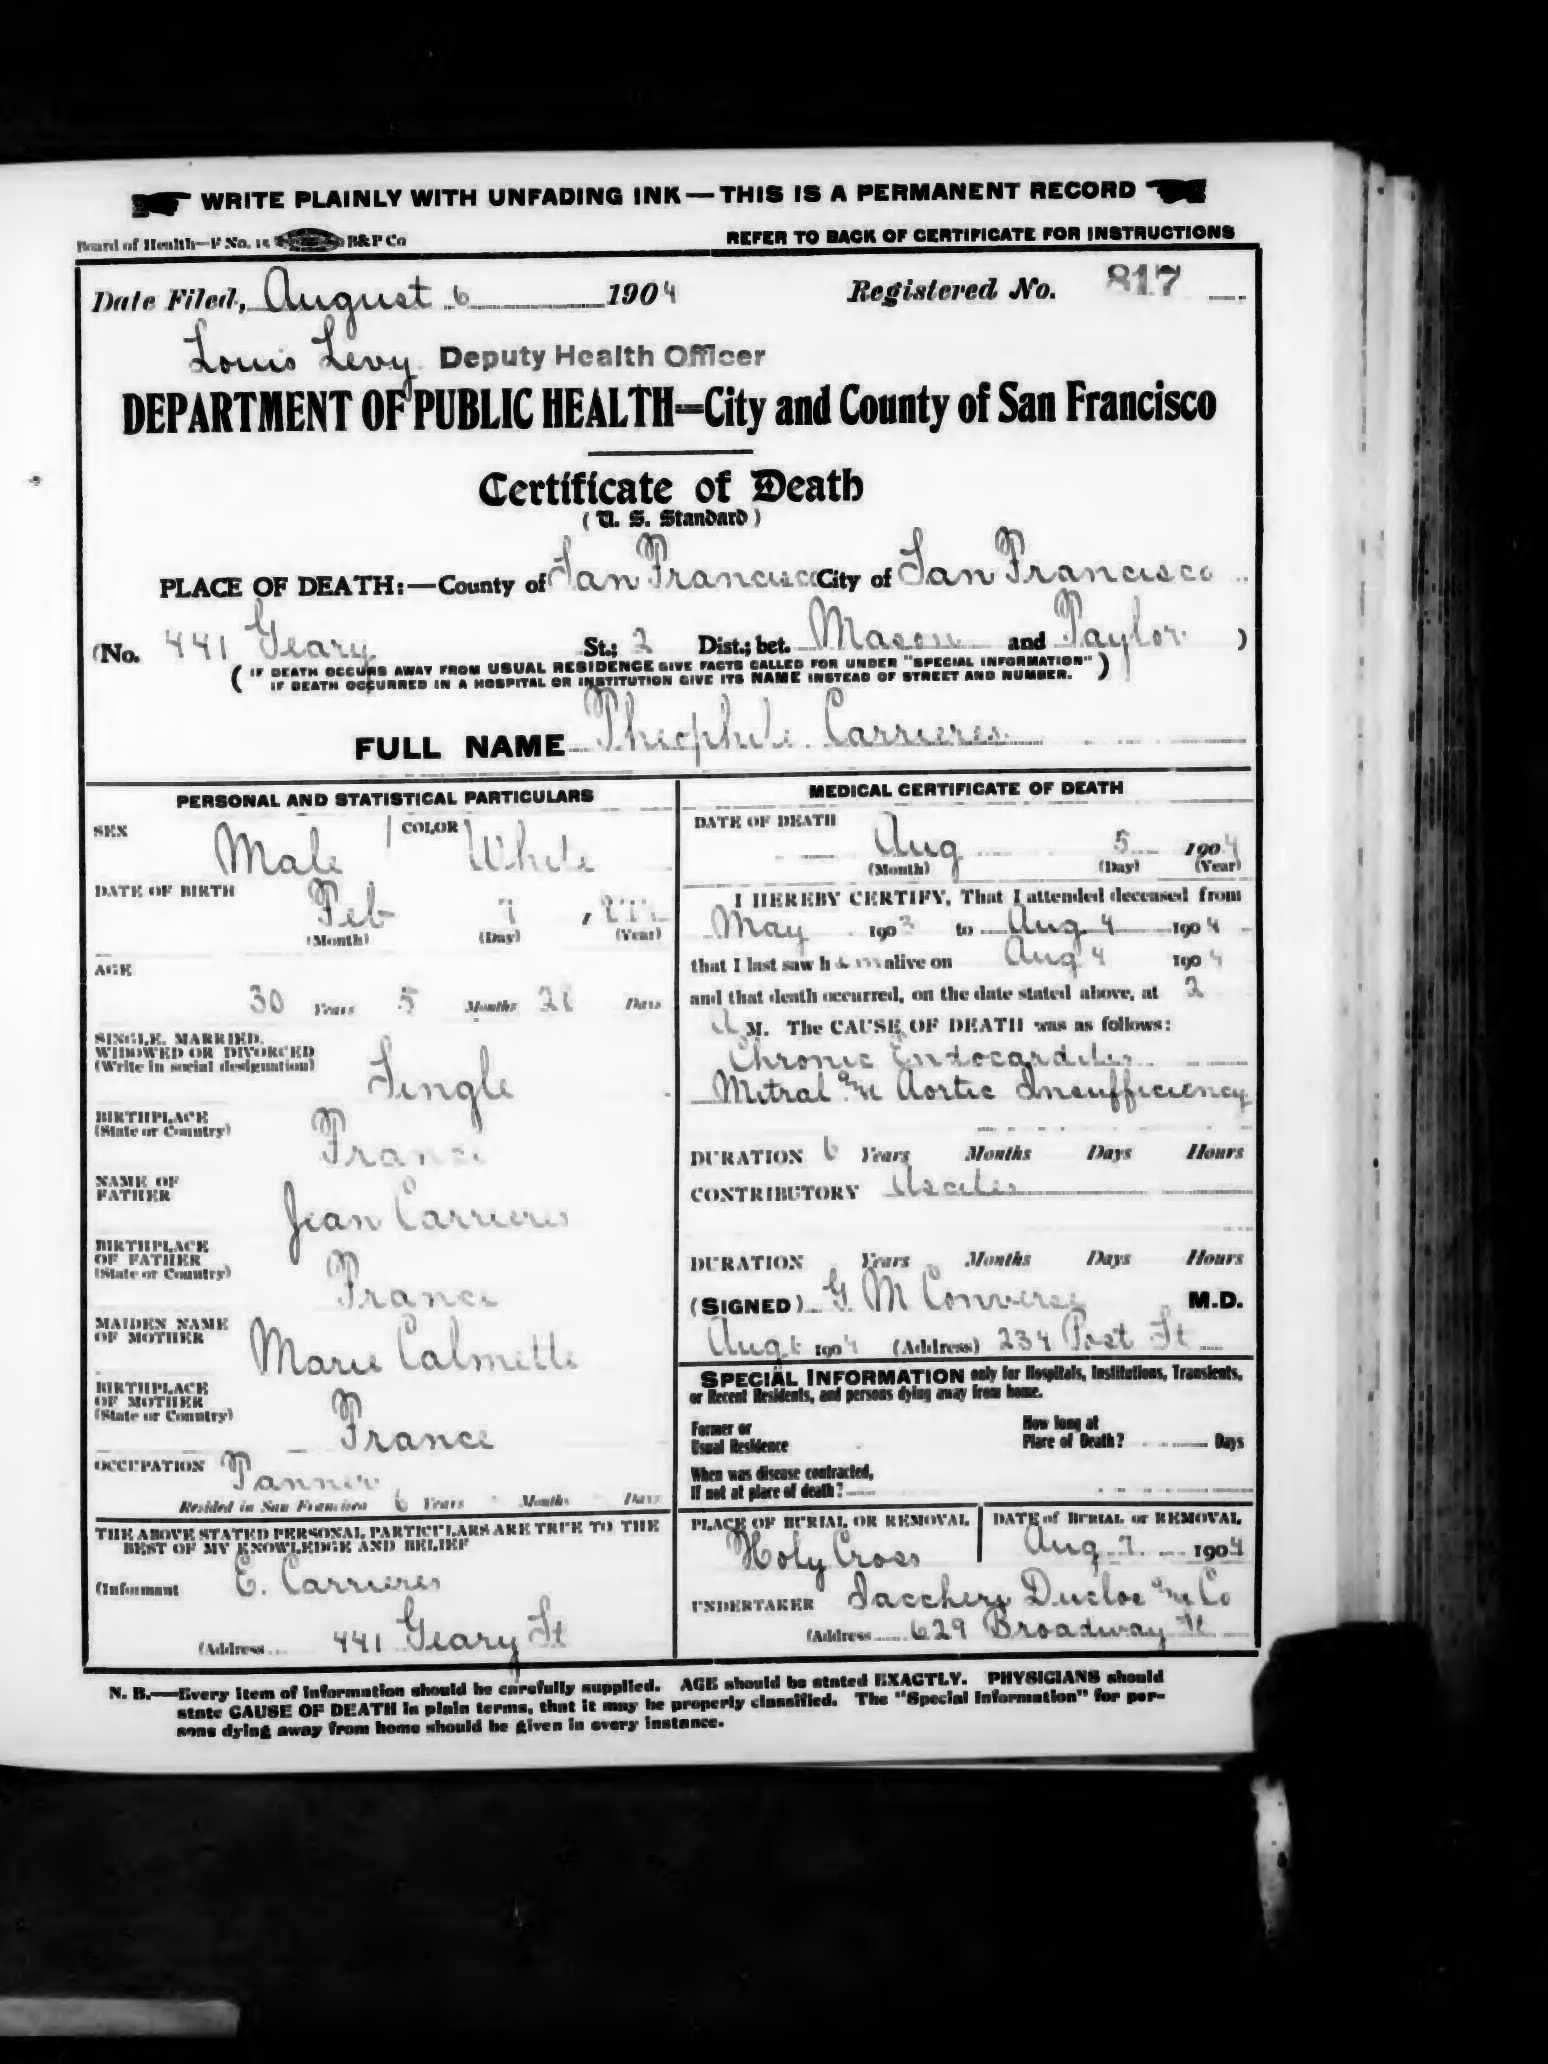 WRITE PLAINLY WITH UNFADING INK — THIS IS A PERMANENT RECORD
Board of Health—F No. 15 B&P Co
REFER TO BACK OF CERTIFICATE FOR INSTRUCTIONS
Date Filed, August 6 1904 Registered No. 817
Louis Levy Deputy Health Officer
DEPARTMENT OF PUBLIC HEALTH=City and County of San Francisco
Certificate of Death
(U. S. Standard)
PLACE OF DEATH:—County of San Francisco City of San Francisco
(No. 441 Geary St.; 2 Dist.; bet. Mason and Taylor )
( IF DEATH OCCURS AWAY FROM USUAL RESIDENCE GIVE FACTS CALLED FOR UNDER "SPECIAL INFORMATION" )
( IF DEATH OCCURRED IN A HOSPITAL OR INSTITUTION GIVE ITS NAME INSTEAD OF STREET AND NUMBER. )
FULL NAME Theophile Carrieres
PERSONAL AND STATISTICAL PARTICULARS
SEX Male COLOR White
DATE OF BIRTH Feb 7
(Month) (Day) (Year)
AGE
30 Years 5 Months Days
SINGLE, MARRIED,
WIDOWED OR DIVORCED
(Write in social designation) Single
BIRTHPLACE
(State or Country) France
NAME OF
FATHER Jean Carrieres
BIRTHPLACE
OF FATHER
(State or Country) France
MAIDEN NAME
OF MOTHER Marie Calmette
BIRTHPLACE
OF MOTHER
(State or Country) France
OCCUPATION Tanner
Resided in San Francisco 6 Years Months Days
THE ABOVE STATED PERSONAL PARTICULARS ARE TRUE TO THE
BEST OF MY KNOWLEDGE AND BELIEF
(Informant E. Carrieres
(Address 441 Geary St
MEDICAL CERTIFICATE OF DEATH
DATE OF DEATH
Aug 5 1904
(Month) (Day) (Year)
I HEREBY CERTIFY, That I attended deceased from
May 1903 to Aug 4 1904
that I last saw him alive on Aug 4 1904
and that death occurred, on the date stated above, at 2
A M. The CAUSE OF DEATH was as follows:
Chronic Endocarditis
Mitral and Aortic Insufficiency
DURATION 6 Years Months Days Hours
CONTRIBUTORY Ascites
DURATION Years Months Days Hours
(SIGNED) G M Converse M.D.
Aug 6 1904 (Address) 234 Post St
SPECIAL INFORMATION only for Hospitals, Institutions, Transients,
or Recent Residents, and persons dying away from home.
Former or
Usual Residence
How long at
Place of Death? Days
When was disease contracted,
If not at place of death?
PLACE OF BURIAL OR REMOVAL
Holy Cross
DATE of BURIAL or REMOVAL
Aug 7 1904
UNDERTAKER Iaccheri Duclos and Co
(Address 629 Broadway St
N. B.—Every item of information should be carefully supplied. AGE should be stated EXACTLY. PHYSICIANS should
state CAUSE OF DEATH in plain terms, that it may be properly classified. The "Special Information" for per-
sons dying away from home should be given in every instance.